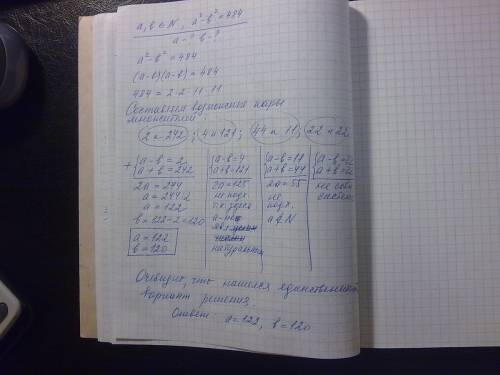 a, b ∈ N, a² - b² = 484
a - ? b - ?
a² - b² = 484
(a-b)(a+b) = 484
484 = 2·2·11·11
Составим возможные пары
множителей:
2 и 242 ; 4 и 121 ; 44 и 11 ; 22 и 22
+ { a - b = 2
a + b = 242
2a = 244
a = 244:2
a = 122
b = 122-2 = 120
a = 122
b = 120
{ a - b = 4
a + b = 121
2a = 125
не подх.
т.к. здесь
a - не
явл.
натуральным
{ a - b = 11
a + b = 44
2a = 55
не
подх.
a ∉ N
{ a - b = 22
a + b = 22
не
систем
Очевидно, что нашелся единственный
вариант решения.
Ответ: a = 122, b = 120